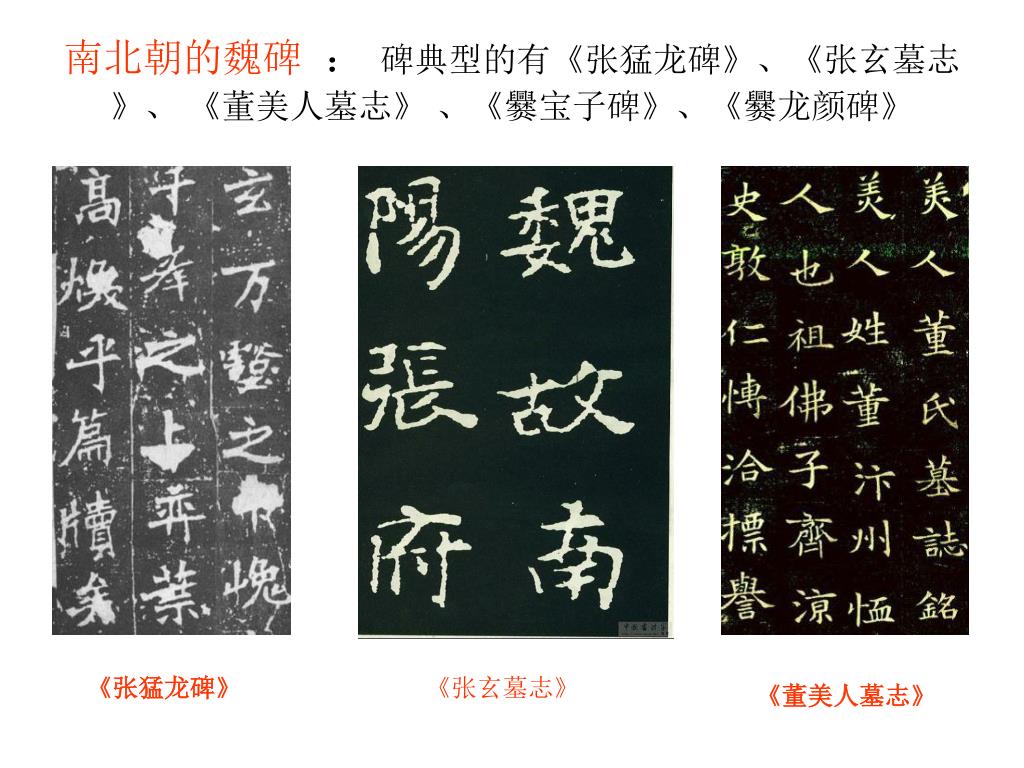 南北朝的魏碑 ： 碑典型的有《张猛龙碑》、《张玄墓志
》、 《董美人墓志》 、《爨宝子碑》、《爨龙颜碑》
玄万壑之
之上
高焕乎篇牍矣
魏故南
陽張府
美人董氏墓誌銘
美人姓董汴州恤
人也祖佛子齊涼
史敦仁慱洽標譽
《张猛龙碑》
《张玄墓志》
《董美人墓志》